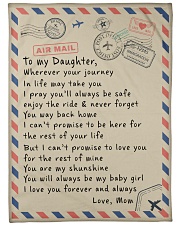 AIR MAIL
To my Daughter,
Wherever your journey
In life may take you
I pray you'll always be safe
enjoy the ride & never forget
You way back home
I can't promise to be here for
the rest of your life
But I can't promise to love you
for the rest of mine
You are my shunshine
You will always be my baby girl
I love you forever and always
Love, Mom